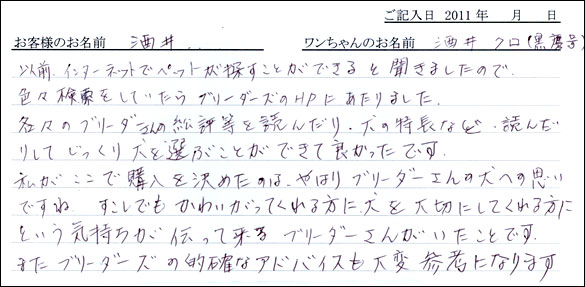 ご記入日 2011 年 月 日
お客様のお名前 酒井 ワンちゃんのお名前 酒井 クロ(黒慶号)
以前、インターネットでペットが探すことができると聞きましたので、
色々検索をしていたらブリーダーズのHPにあたりました。
各々のブリーダーさんの総評等を読んだり、犬の特長など、読んだ
りしてじっくり犬を選ぶことができて良かったです。
私がここで購入を決めたのは、やはりブリーダーさんの犬への思い
ですね すこしでもかわいがってくれる方に、犬を大切にしてくれる方に
という気持ちが伝って来る ブリーダーさんがいたことです。
またブリーダーズの的確なアドバイスも大変参考になります